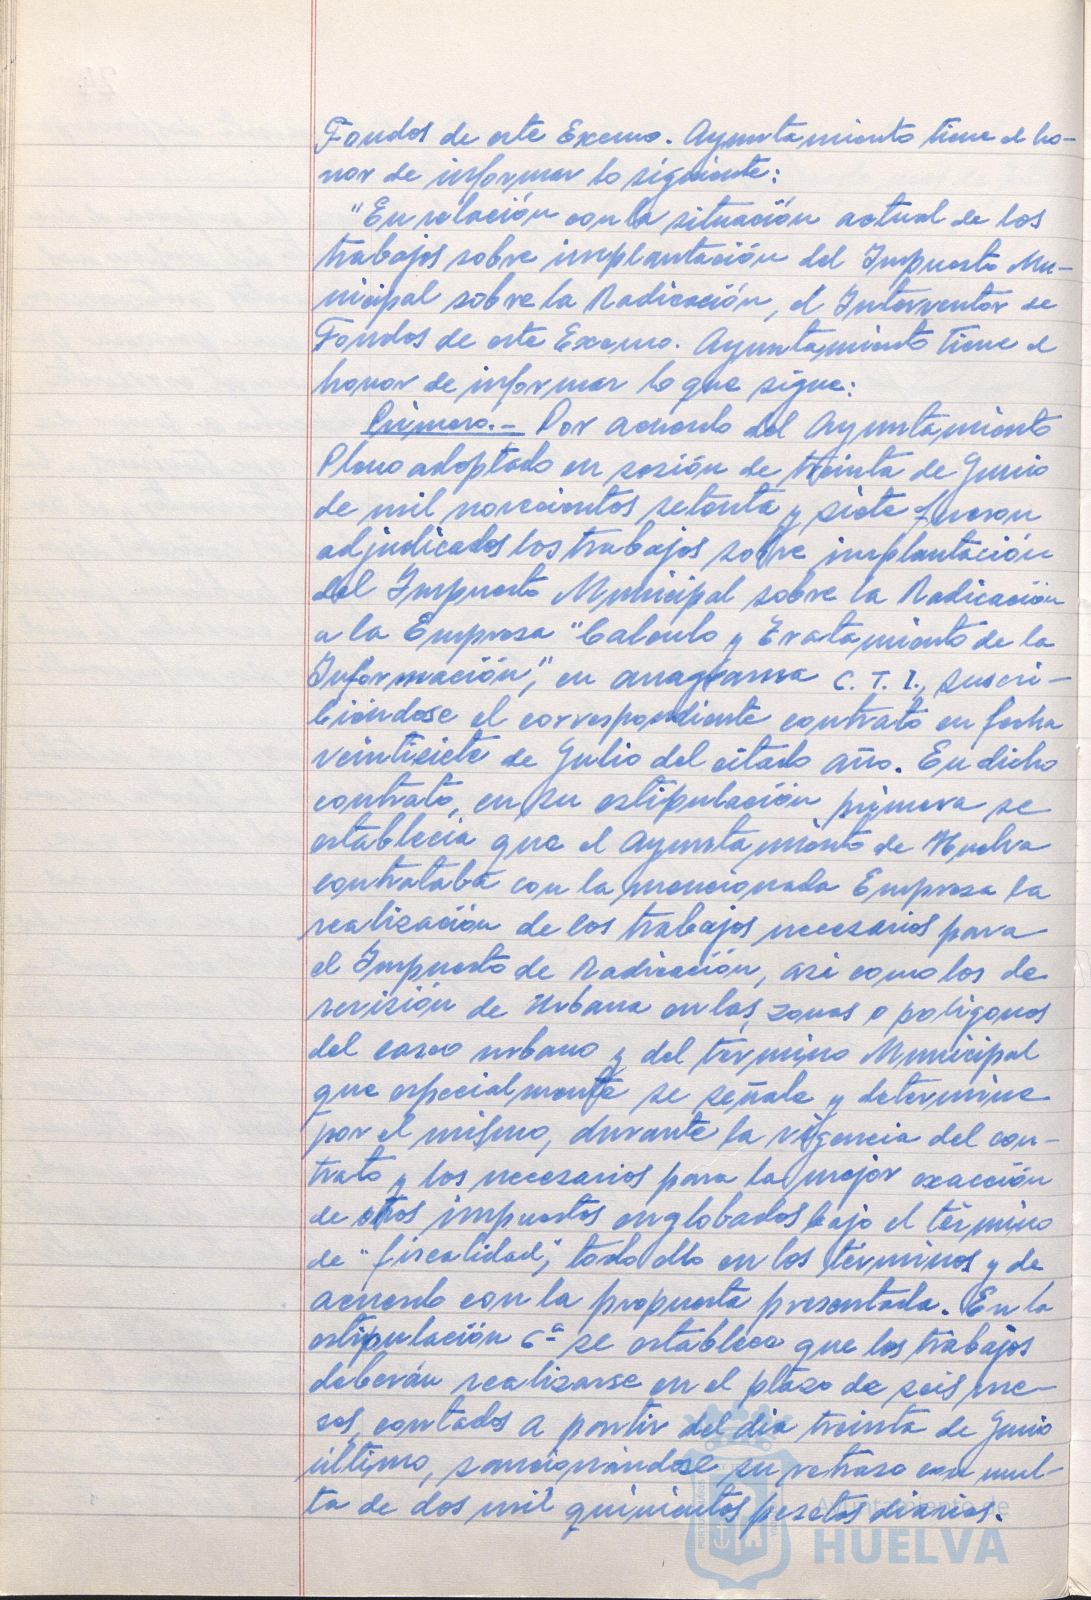 Fondos de este Excmo. Ayuntamiento tiene el ho-
nor de informar lo siguiente:
"En relación con la situación actual de los
trabajos sobre implantación del Impuesto Mu-
nicipal sobre la Radicación, el Interventor de
Fondos de este Excmo. Ayuntamiento tiene el
honor de informar lo que sigue:
Primero.- Por acuerdo del Ayuntamiento
Pleno adoptado en sesión de treinta de Junio
de mil novecientos setenta y siete fueron
adjudicados los trabajos sobre implantación
del Impuesto Municipal sobre la Radicación
a la Empresa "Calculo y Tratamiento de la
Información", en anagrama C. T. I., suscri-
biéndose el correspondiente contrato en fecha
veintisiete de Julio del citado año. En dicho
contrato, en su estipulación primera se
establecia que el Ayuntamiento de Huelva
contrataba con la mencionada Empresa la
realización de los trabajos necesarios para
el Impuesto de Radicación, asi como los de
revisión de Urbana en las zonas o poligonos
del casco urbano y del término Municipal
que especialmente se señale y determine
por el mismo, durante la vigencia del con-
trato y los necesarios para la mejor exacción
de otros impuestos englobados bajo el término
de "fiscalidad", todo ello en los términos y de
acuerdo con la propuesta presentada. En la
estipulación 6ª se establece que los trabajos
deberán realizarse en el plazo de seis me-
ses, contados a partir del dia treinta de Junio
último, sancionándose su retraso con mul-
ta de dos mil quinientas pesetas diarias.
Ayuntamiento de
HUELVA